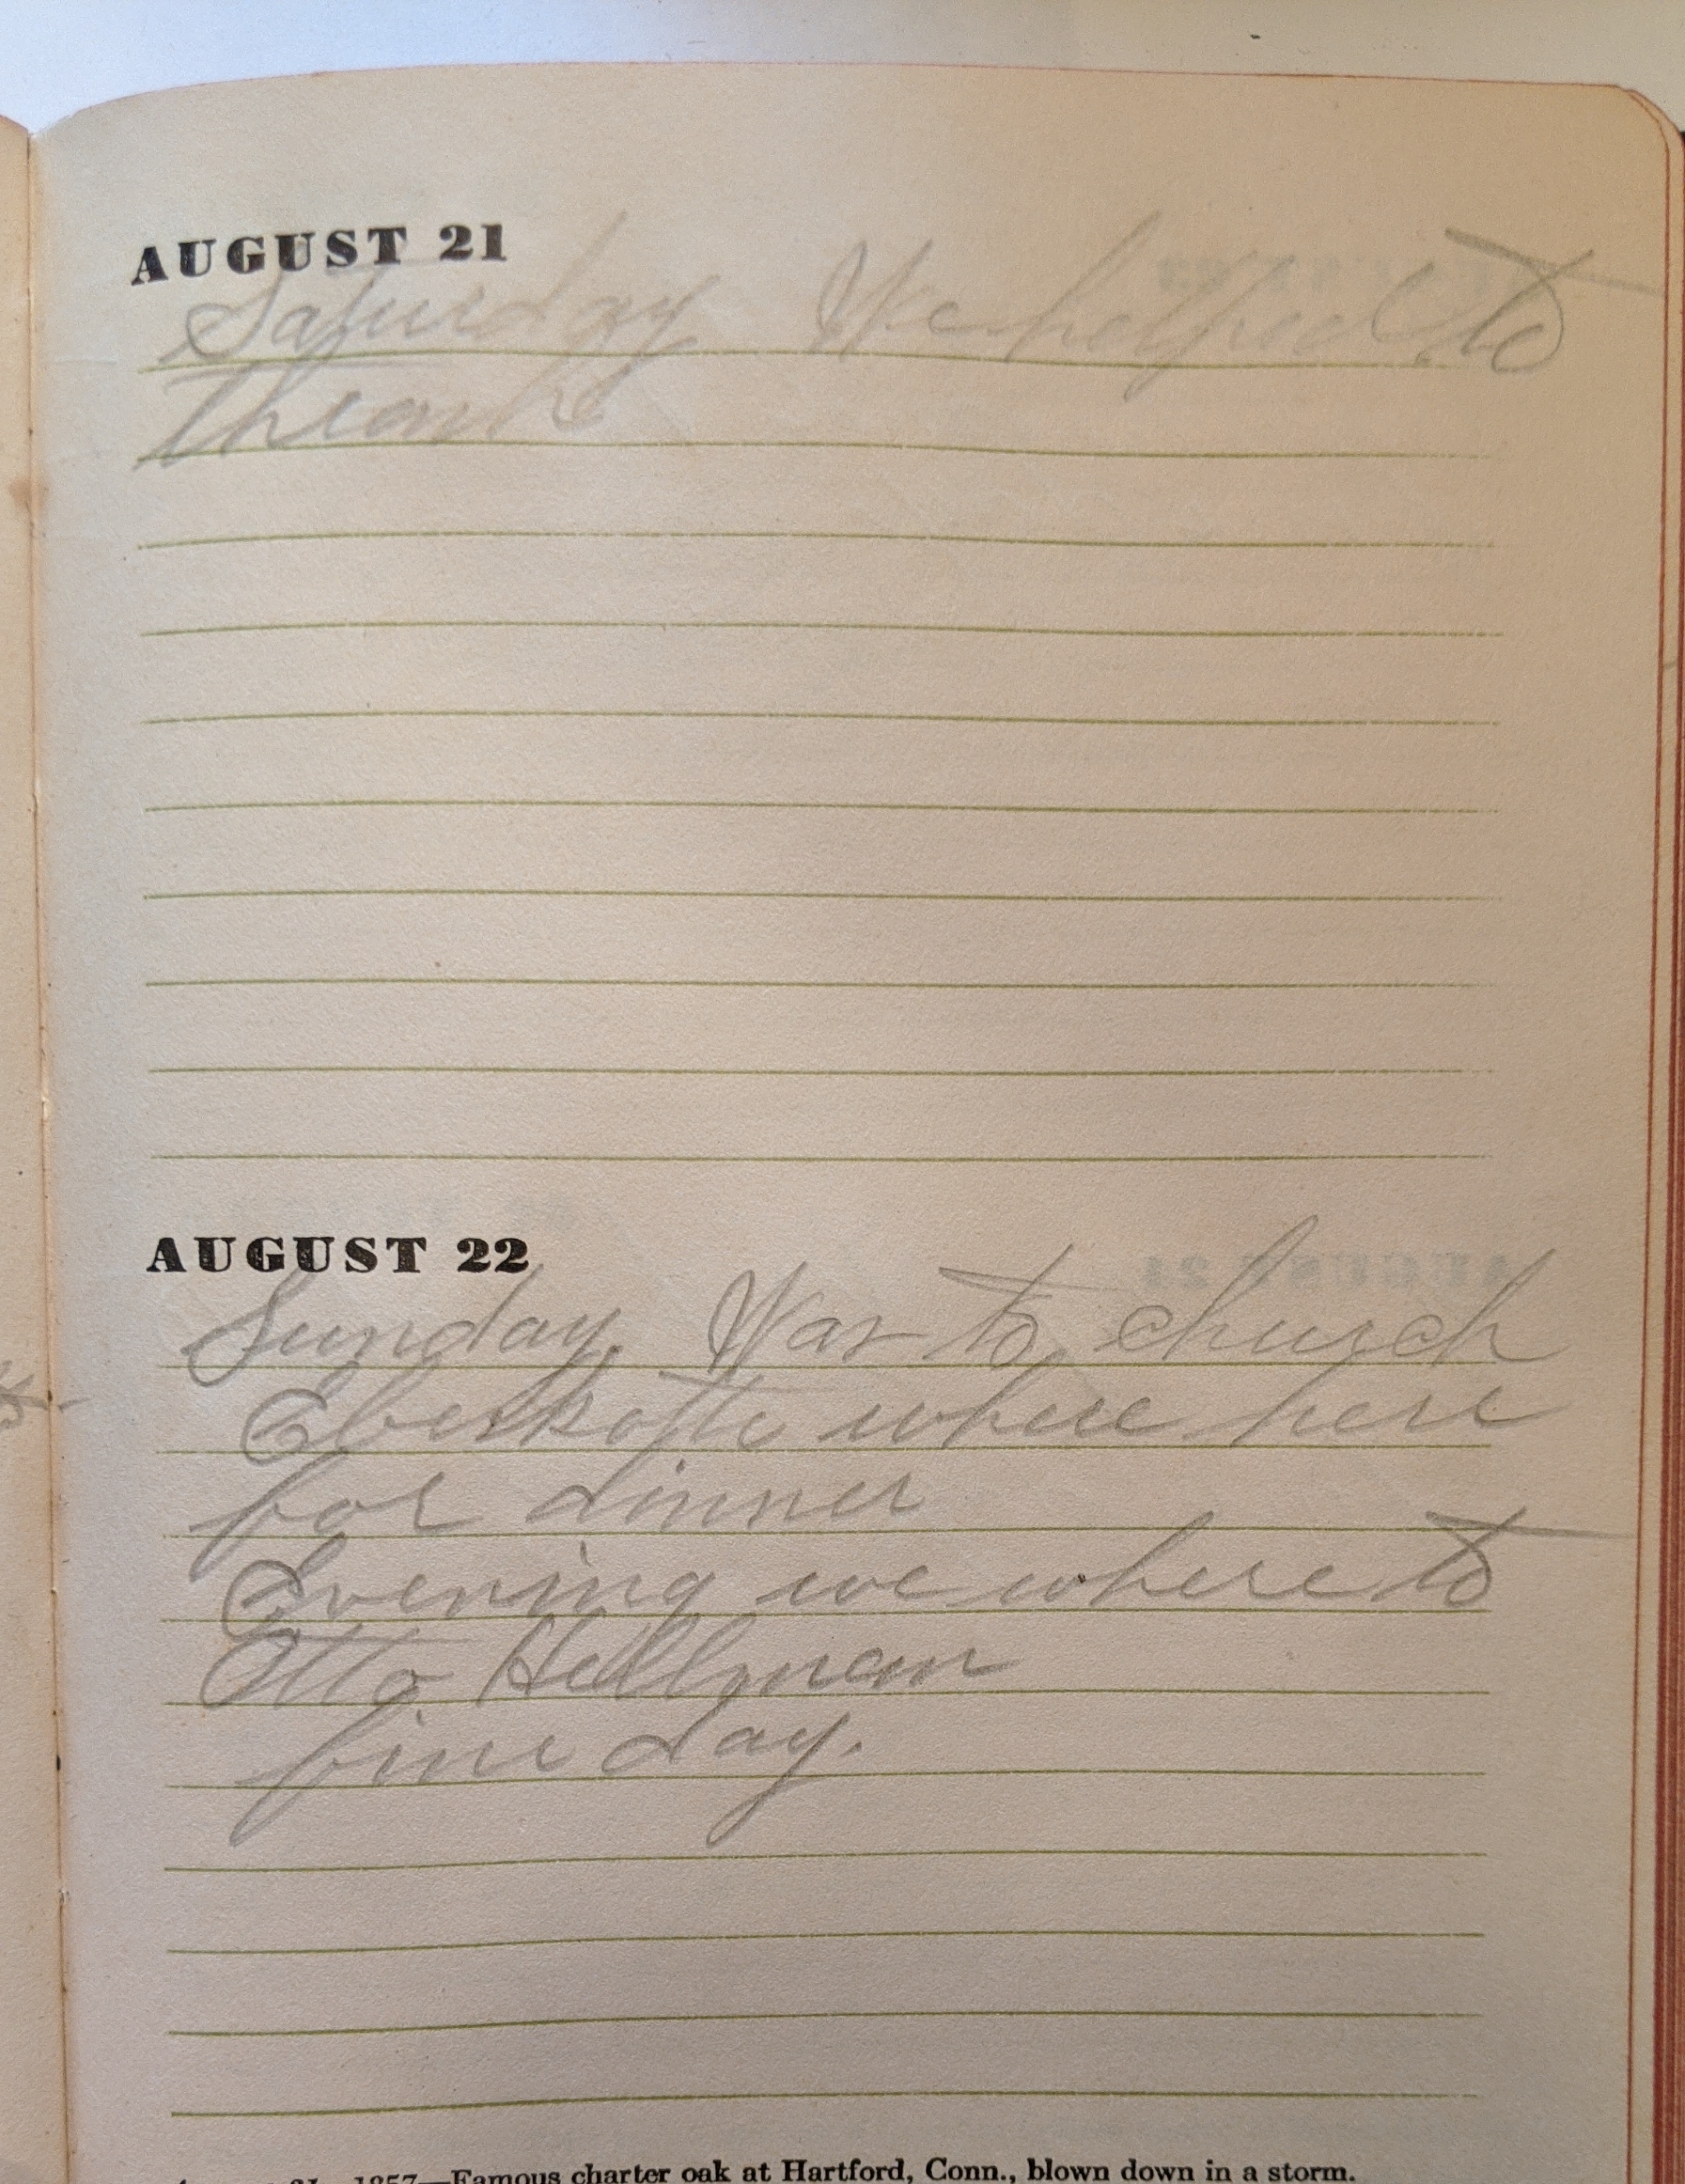 AUGUST 21
Saturday We helped to
thrash
AUGUST 22
Sunday. Was to church
Eberkotte where here
for dinner
Evening we where to
Otto Hellman
fine day.
1857—Famous charter oak at Hartford, Conn., blown down in a storm.